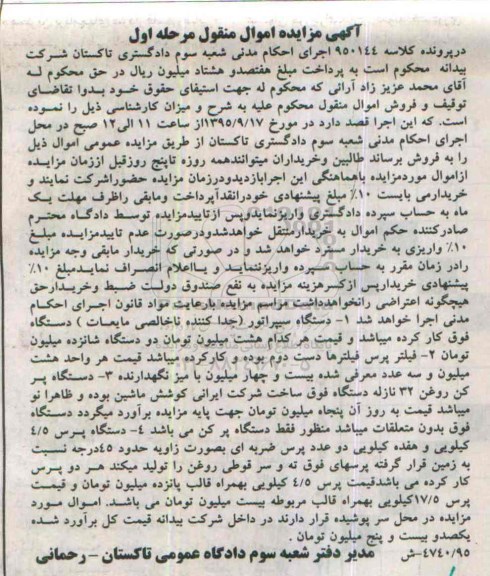 آگهی مزایده اموال منقول مرحله اول
درپرونده کلاسه ۹۵۰۱۴۴ اجرای احکام مدنی شعبه سوم دادگستری تاکستان شرکت
بیدانه محکوم است به پرداخت مبلغ هفتصدو هشتاد میلیون ریال در حق محکوم له
آقای محمد عزیز زاد آرائی که محکوم له جهت استیفای حقوق خود بدوا تقاضای
توقیف و فروش اموال منقول محکوم علیه به شرح و میزان کارشناسی ذیل را نموده
است. که این اجرا قصد دارد در مورخ ۱۳۹۵/۹/۱۷از ساعت ۱۱ الی۱۲ صبح در محل
اجرای احکام مدنی شعبه سوم دادگستری تاکستان از طریق مزایده عمومی اموال ذیل
را به فروش برساند طالبین وخریداران میتوانندهمه روزه تاپنج روزقبل اززمان مزایده
ازاموال موردمزایده باهماهنگی این اجرابازدیدودرزمان مزایده حضورشرکت نمایند و
خریدارمی بایست ۱۰٪ مبلغ پیشنهادی خودرانقداًپرداخت ومابقی راظرف مهلت یک
ماه به حساب سپرده دادگستری واریزنمایدوپس ازتاییدمزایده توسط دادگاه محترم
صادرکننده حکم اموال به خریدارمنتقل خواهدشدودرصورت عدم تاییدمزایده مبلغ
۱۰٪ واریزی به خریدار مسترد خواهد شد و در صورتی که خریدار مابقی وجه مزایده
رادر زمان مقرر به حساب سپرده واریزننماید و یااعلام انصراف نمایدمبلغ ۱۰٪
پیشنهادی خریدارپس ازکسرهزینه مزایده به نفع صندوق دولت ضبط وخریدارحق
هیچگونه اعتراضی رانخواهدداشت مراسم مزایده بارعایت مواد قانون اجرای احکام
مدنی اجرا خواهد شد ۱- دستگاه سپراتور (جدا کننده ناخالصی مایعات ) دستگاه
فوق کار کرده میباشد و قیمت هر کدام هشت میلیون تومان دو دستگاه شانزده میلیون
تومان ۲- فیلتر پرس فیلترها دست دوم بوده و کارکرده میباشد قیمت هر واحد هشت
میلیون و سه عدد معرفی شده بیست و چهار میلیون با میز نگهدارنده ۳- دستگاه پر
کن روغن ۳۲ نازله دستگاه فوق ساخت شرکت ایرانی کوشش ماشین بوده و ظاهرا نو
میباشد قیمت به روز آن پنجاه میلیون تومان جهت پایه مزایده برآورد میگردد دستگاه
فوق بدون متعلقات میباشد منظور فقط دستگاه پر کن می باشد ۴- دستگاه پرس ۴/۵
کیلویی و هفده کیلویی دو عدد پرس ضربه ای بصورت زاویه حدود ۴۵درجه نسبت
به زمین قرار گرفته پرسهای فوق ته و سر قوطی روغن را تولید میکند هر دو پرس
کار کرده می باشدقیمت پرس ۴/۵ کیلویی بهمراه قالب پانزده میلیون تومان و قیمت
پرس ۱۷/۵کیلویی بهمراه قالب مربوطه بیست میلیون تومان می باشد. اموال مورد
مزایده در محل سر پوشیده قرار دارند در داخل شرکت بیدانه قیمت کل برآورد شده
یکصدو بیست و پنج میلیون تومان .
۴۷۴۰/۹۵-ش مدیر دفتر شعبه سوم دادگاه عمومی تاکستان - رحمانی